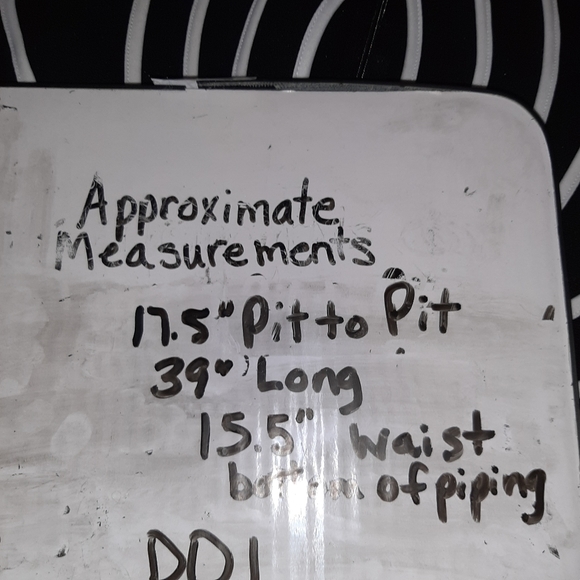 Approximate
Measurements
17.5" Pit to Pit
39" Long
15.5" waist
bottom of piping